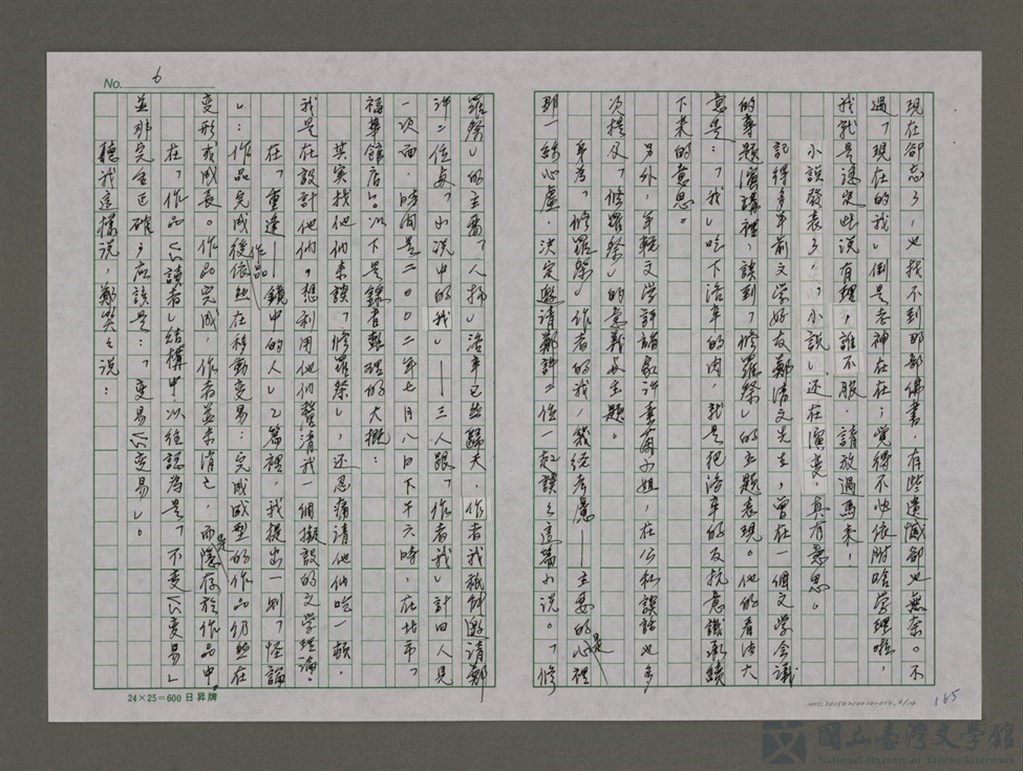 No. 6
現在卻忘了，也找不到那部佛書，有些遺憾卻也無奈。不
過，「現在的我」倒是老神在在；覺得不必依附啥學理啦，
我就是認定此說有理，誰不服，請放過馬來！
小說發表了，「小說」還在演變，真有意思。
記得多年前文學好友鄭清文先生，曾在一個文學會議
的專題演講裡，談到「修羅祭」的主題表現。他的看法大
意是：「我」吃下洛辛的肉，就是把洛辛的反抗意識承續
下來的意思。
另外，年輕文學評論家許素蘭小姐，在公私談話也多
次提及「修羅祭」的意義與主題。
身為「修羅祭」作者的我，幾經考慮——主要的是心裡
那一絲心虛，決定邀請鄭許二位一起談談這篇小說。「修
羅祭」的主要「人物」洛辛已經歸天，作者我祇能邀請鄭
許二位與「小說中的我」——三人跟「作者我」計四人見
一次面，時間是二〇〇二年七月八日下午六時，在北市「
福華館店」。以下是錄者整理的大概：
其實找他們來談「修羅祭」，還忍痛請他們吃一頓，
我是在設計他們，想利用他們釐清我一個擬設的文學理論。
在「重逢——作品鏡中的人」乙篇裡，我提出一則「怪論
」：作品完成後依然在移動變易：完成成型的作品仍然在
变形或成長。作品完成，作者並未消亡，而是隱存於作品中。
在「作品⟨⟩讀者」結構中以往認為是「不变⟨⟩变易」
並非完全正確；应該是：「变易⟨⟩变易」。
聽我這樣說，鄭笑笑說：
24×25=600 日昇牌
165
國立臺灣文學館
National Museum of Taiwan Literature